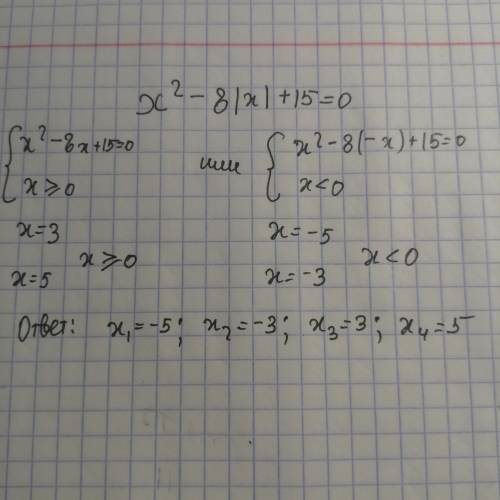 x² - 8|x| + 15 = 0
{ x² - 8x + 15 = 0
x ⩾ 0
или
{ x² - 8(-x) + 15 = 0
x < 0
x = 3
x = 5
x ⩾ 0
x = -5
x = -3
x < 0
Ответ: x₁ = -5; x₂ = -3; x₃ = 3; x₄ = 5